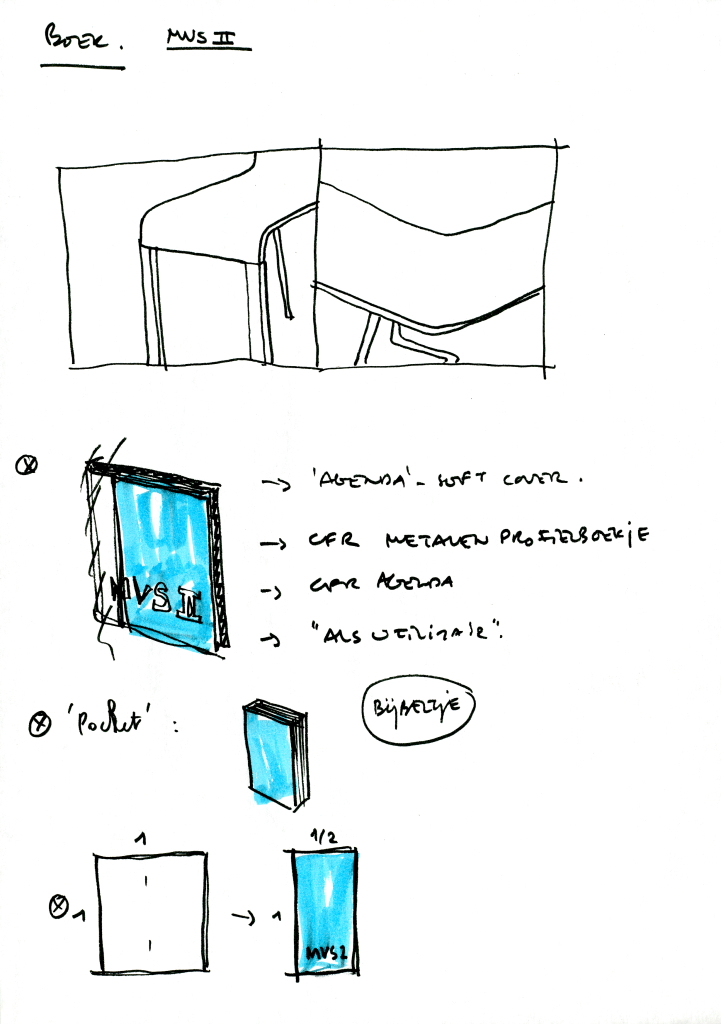 BOEK. MVS II
→ 'AGENDA' - SOFT COVER.
→ CFR METALEN PROFIELBOEKJE
→ CFR AGENDA
→ "ALS UTILITAIR".
MVS II
'Pocket' :
BIJBELTJE
1
1/2
1
→ 1
MVS2